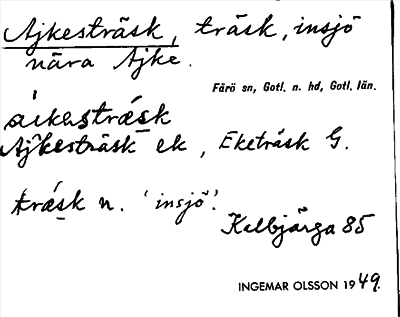 Ajkesträsk, träsk, insjö
nära Ajke.
Fårö sn, Gotl. n. hd, Gotl. län.
áikastræsk
Ajkesträsk ek, Eketräsk G.
træsk n. 'insjö'.
Kalbjärga 85
INGEMAR OLSSON 1949.